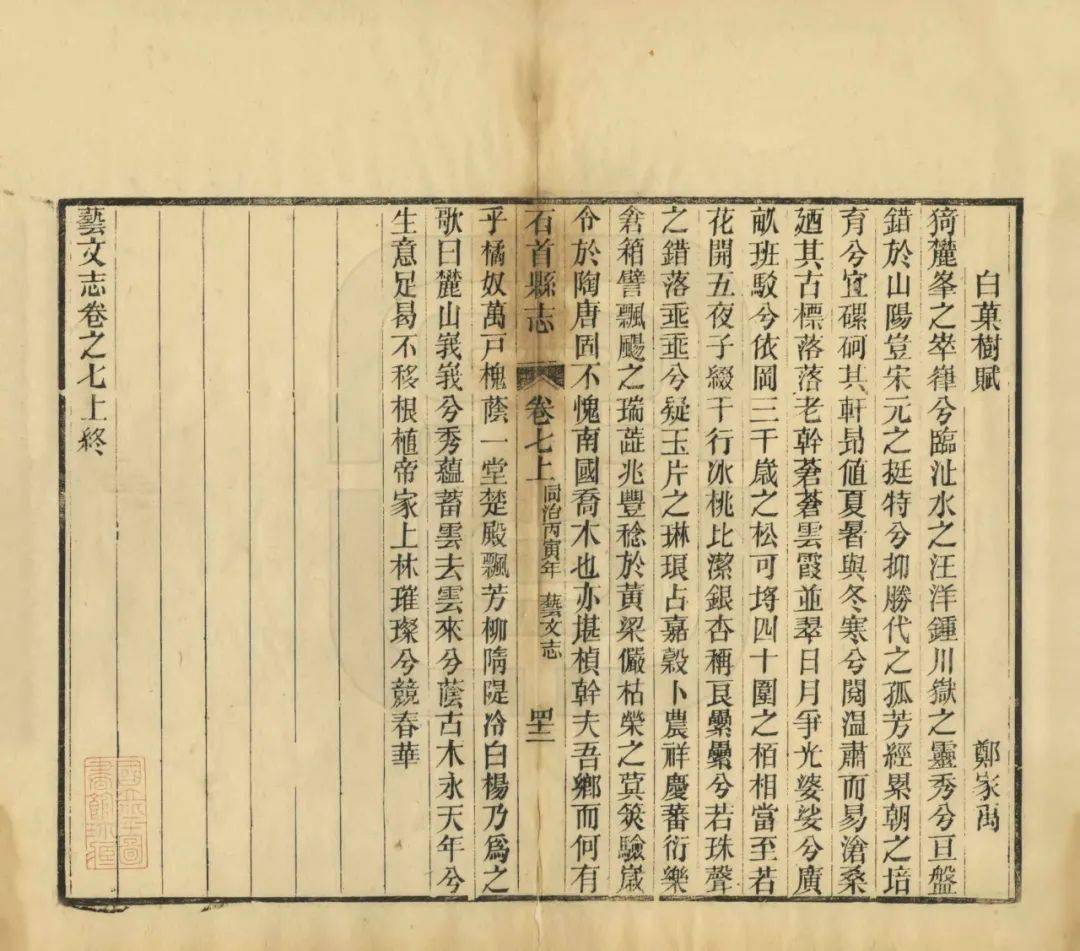 白菓樹賦 鄭家禹
猗麓峯之崒嵂兮臨沚水之汪洋鍾川嶽之靈秀兮亘盤
錯於山陽豈宋元之挺特兮抑勝代之孤芳經累朝之培
育兮宜磥砢其軒昻値夏暑與冬寒兮閱温肅而易滄桑
廼其古標落落老幹蒼蒼雲霞並翠日月爭光婆娑兮廣
畝班駁兮依岡三千歲之松可埒四十圍之栢相當至若
花開五夜子綴千行冰桃比潔銀杏稱良纍纍兮若珠聲
之錯落乖乖兮疑玉片之琳琅占嘉穀卜農祥慶蕃衍樂
倉箱譬飄颺之瑞蓝兆豐稔於黃粱儼枯榮之蓂筴驗歲
令於陶唐固不愧南國喬木也亦堪楨幹夫吾鄉而何有
石首縣志 卷七上 同治丙寅年 藝文志 四十二
乎橘奴萬戸槐蔭一堂楚殿飄芳柳隋隄冷白楊乃爲之
歌曰麓山峩峩兮秀蘊蓄雲去雲來兮蔭古木永天年兮
生意足曷不移根植帝家上林璀璨兮競春華
藝文志卷之七上終